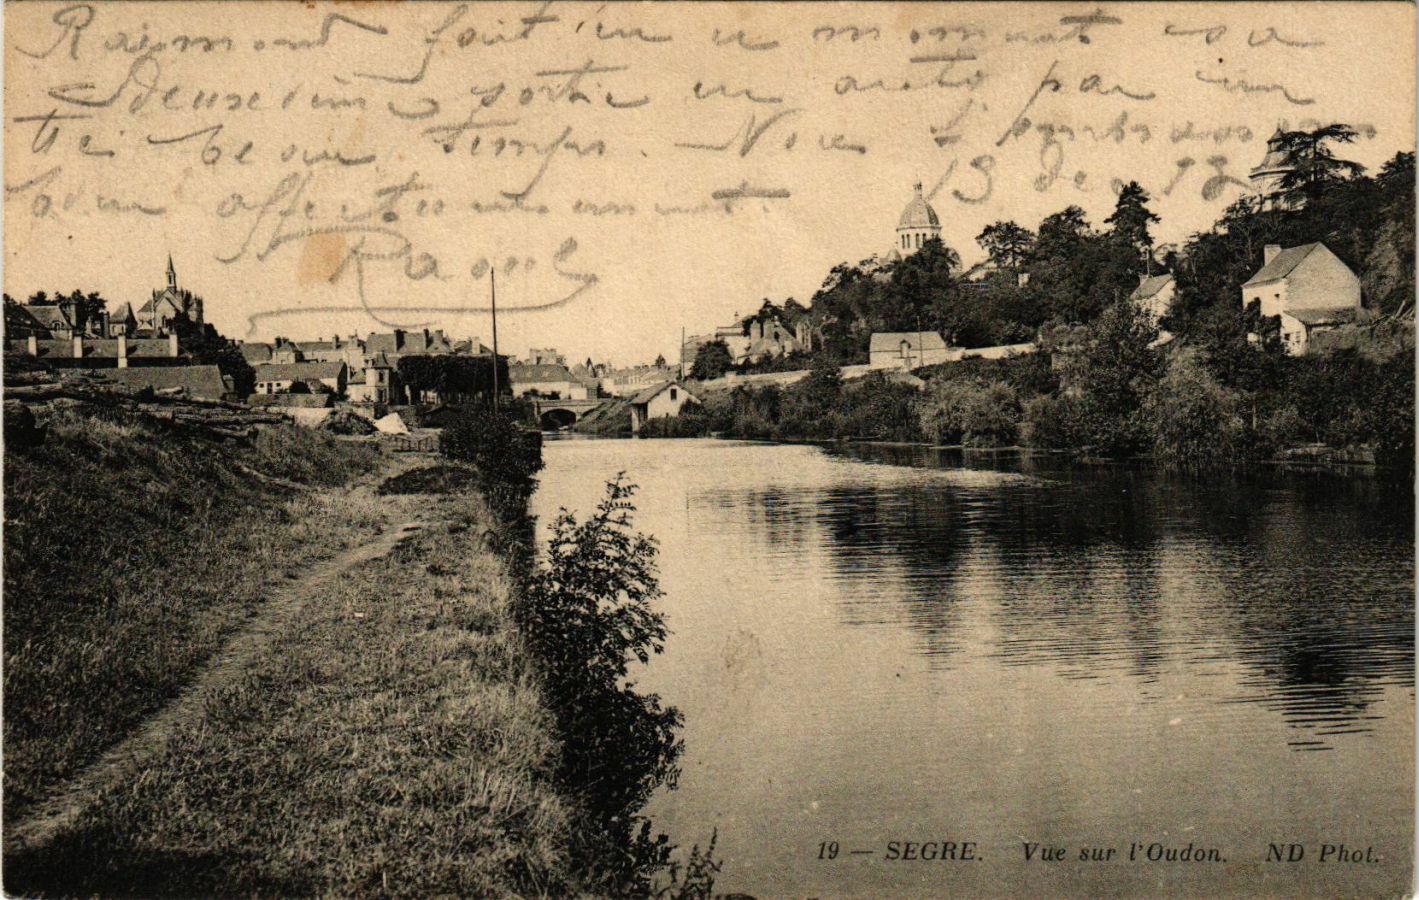 Raimond fait en ce moment sa
deuxième sortie en auto par un
très beau temps. Nous t'embrassons
bien affectueusement.
13 Dec 12
Raoul
19 — SEGRE. Vue sur l'Oudon. ND Phot.